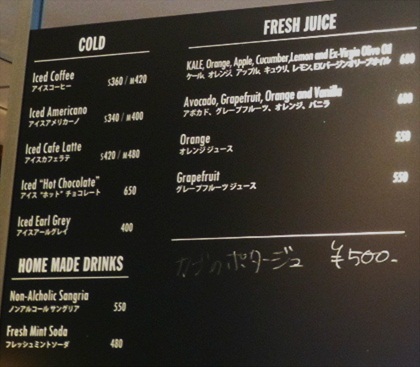 COLD
Iced Coffee S360 / M420
アイスコーヒー
Iced Americano S340 / M400
アイスアメリカーノ
Iced Cafe Latte S420 / M480
アイスカフェラテ
Iced "Hot Chocolate" 650
アイス "ホット" チョコレート
Iced Earl Grey 400
アイスアールグレイ
HOME MADE DRINKS
Non-Alcholic Sangria 550
ノンアルコール サングリア
Fresh Mint Soda 480
フレッシュミントソーダ
FRESH JUICE
KALE, Orange, Apple, Cucumber,Lemon and Ex-Virgin Olive Oil 600
ケール, オレンジ, アップル, キュウリ, レモン, EXバージンオリーブオイル
Avocado, Grapefruit, Orange and Vanilla 600
アボカド、グレープフルーツ、オレンジ、バニラ
Orange 550
オレンジ ジュース
Grapefruit 550
グレープフルーツ ジュース
カブのポタージュ ¥500.-